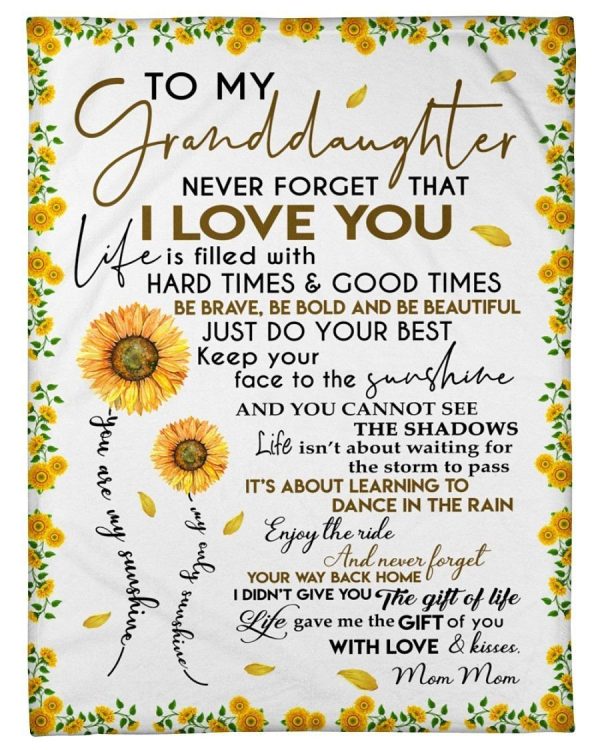 TO MY
Granddaughter
NEVER FORGET THAT
I LOVE YOU
Life is filled with
HARD TIMES & GOOD TIMES
BE BRAVE, BE BOLD AND BE BEAUTIFUL
JUST DO YOUR BEST
Keep your
face to the sunshine
AND YOU CANNOT SEE
THE SHADOWS
Life isn't about waiting for
the storm to pass
IT'S ABOUT LEARNING TO
DANCE IN THE RAIN
Enjoy the ride
And never forget
YOUR WAY BACK HOME
I DIDN'T GIVE YOU The gift of life
Life gave me the GIFT of you
WITH LOVE & kisses,
Mom Mom
you are my sunshine
my only sunshine